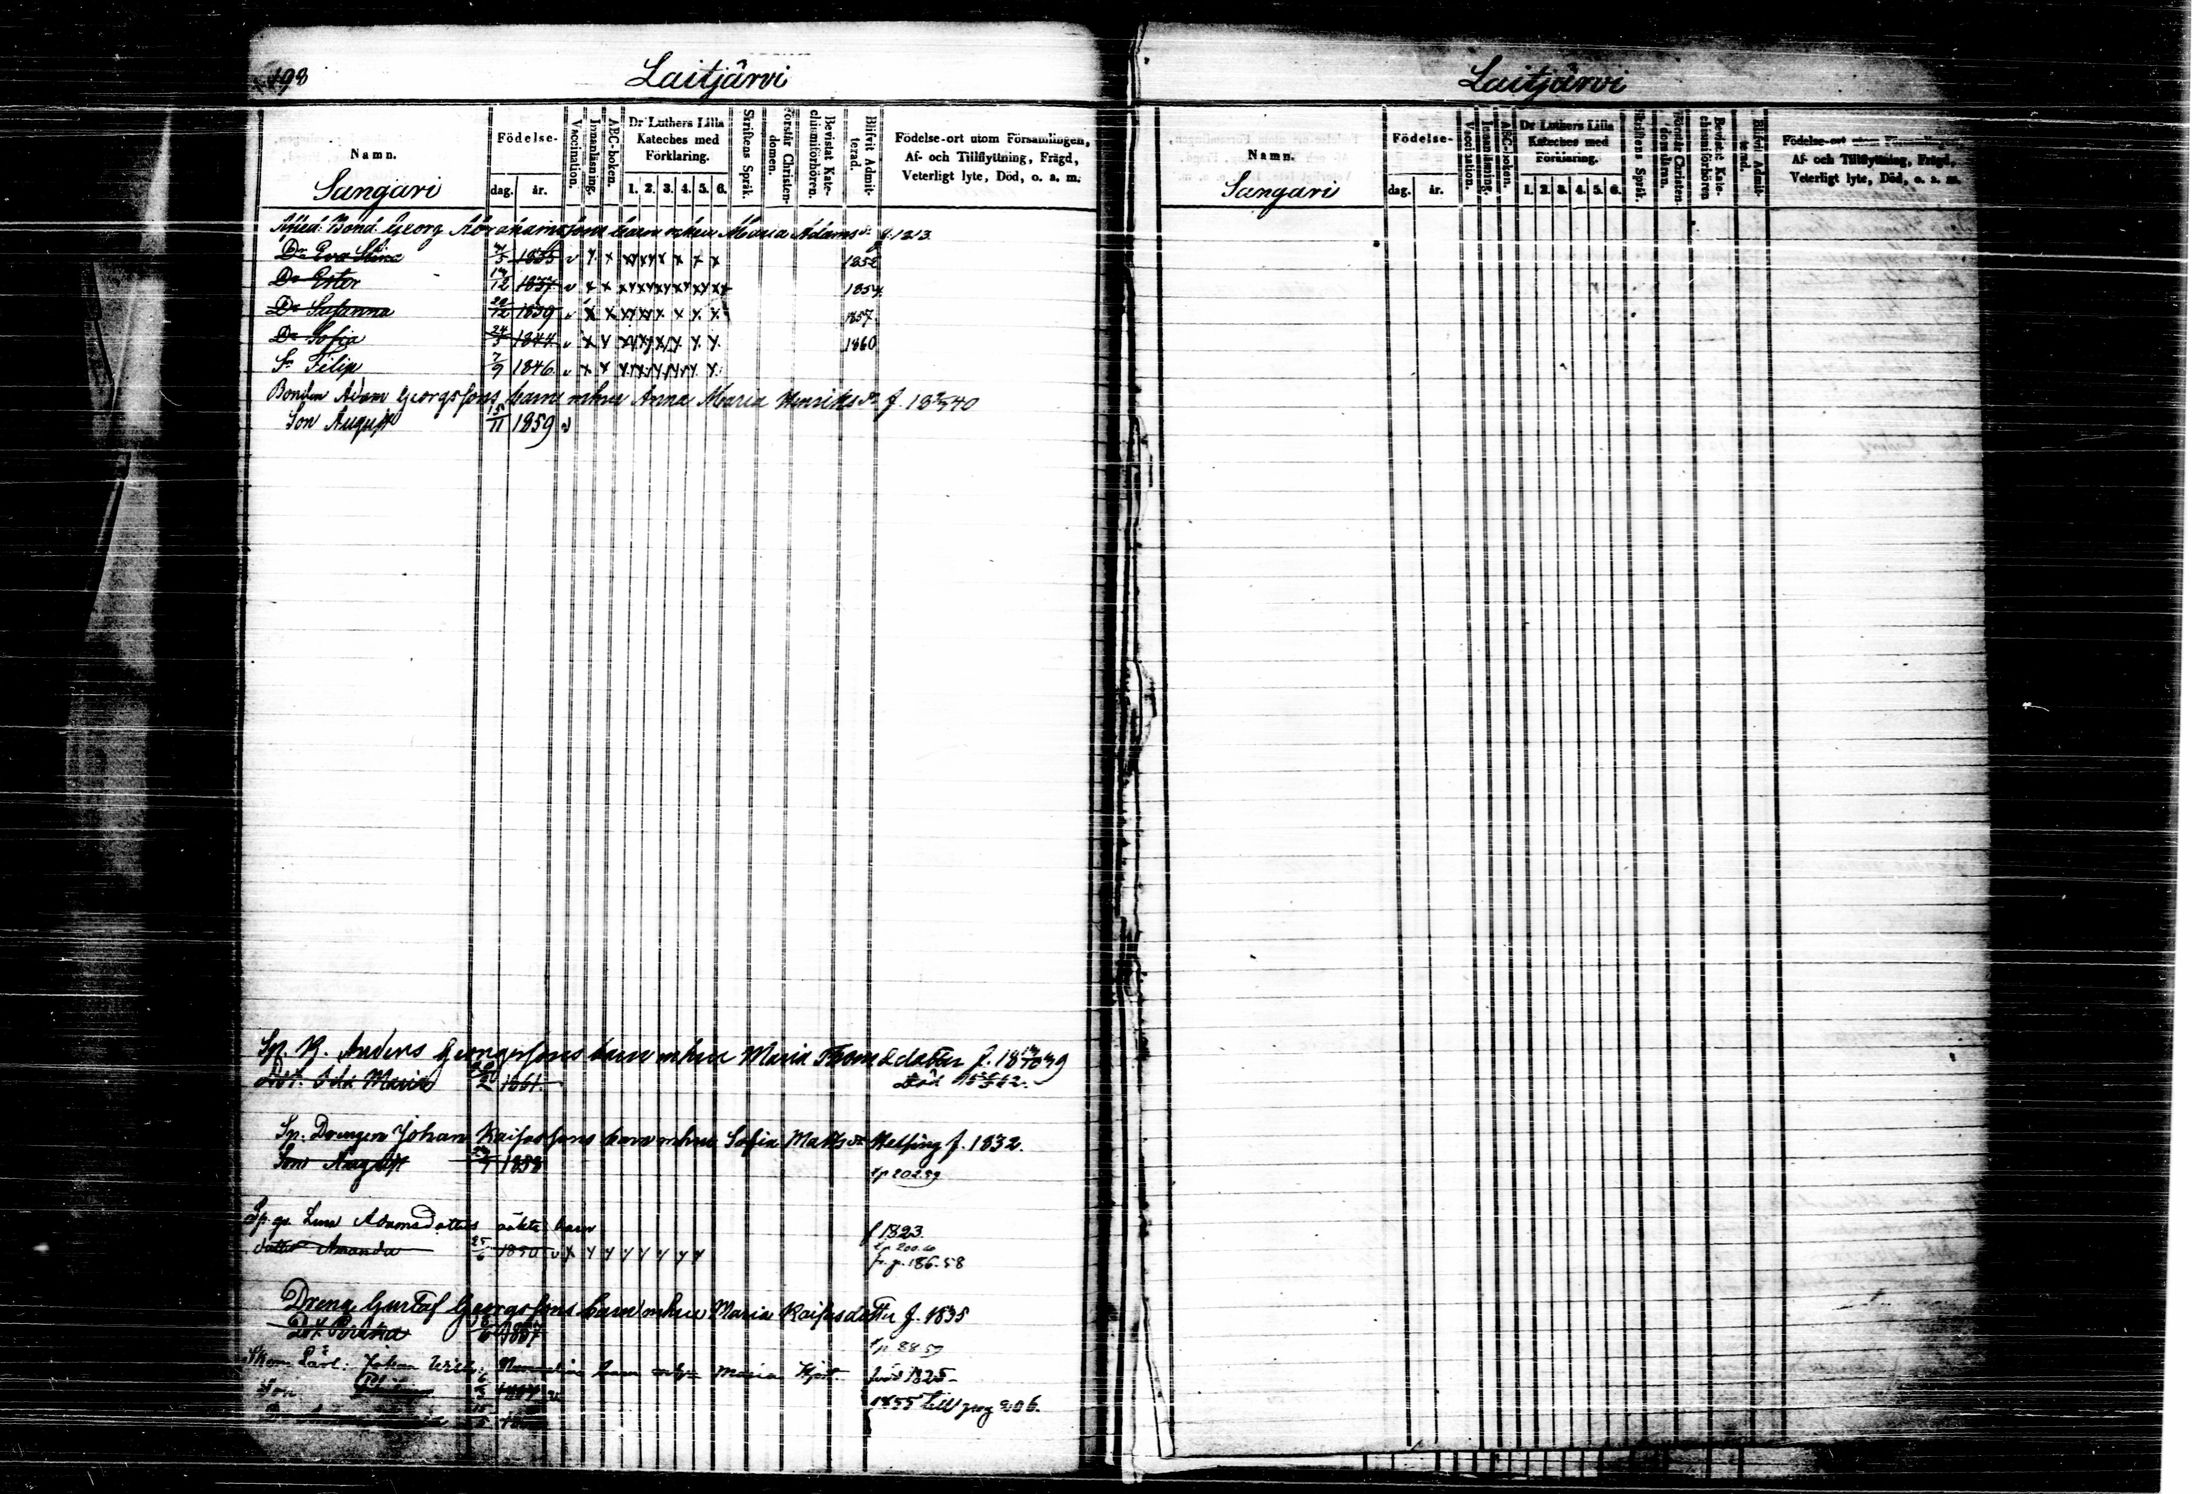 198
Laitjärvi
Namn.
Sangari
Födelse-
dag. år.
Vaccination.
Innanläsning.
ABC-boken.
Dr Luthers Lilla Kateches med Förklaring.
1. 2. 3. 4. 5. 6.
Skriftens Språk.
Förstår Christendomen.
Bevistat Katechismiförhören.
Blifvit Admitterad.
Födelse-ort utom Församlingen, Af- och Tillflyttning, Frägd, Veterligt lyte, Död, o. a. m.
Afled. Bond. Georg Abrahamssons barn mhu Maria Adamsdr f. 1213
Dr Eva Stina 1835 v x x x x x x x x x 1852
Dr Ester 17/12 1837 v x x x x x x x x x 1854
Dr Susanna 20/12 1839 v x x x x x x x x 1857
Dr Sofia 24/5 1844 v x x x x x x x x 1860
Sn Filip 7/9 1846 v x x x x x x x x
Bonden Adam Georgssons barn mhu Anna Maria Henriksdr f. 1840
Son August 15/11 1859 v
Sp. K. Anders Georgssons barn mhu Maria Thomedotter f. 1839
Dot. Ida Maria 1861. Död 62.
Sp. Drengen Johan Kaifassons barn mhu Sofia Matsdr Helsing f. 1832.
Son August 1858 t p 202 59
Sp. qv. Lena Adamsdotters oäkta barn f 1823.
dotter Amanda 25/6 1850 v x y y y y y y y t p. 200.
fr. p. 186. 58
Dreng Gustaf Georgssons barn mhu Maria Kaifasdotter f. 1835
Dot. 1857 t p 88 59
Skom. Lärl. Johan barn mhu Maria född 1825
Son
1855 till pag 206.
Laitjärvi
Namn.
Sangari
Födelse-
dag. år.
Vaccination.
Innanläsning.
ABC-boken.
Dr Luthers Lilla Kateches med Förklaring.
1. 2. 3. 4. 5. 6.
Skriftens Språk.
Förstår Christendomen.
Bevistat Katechismiförhören
Blifvit Admitterad.
Födelse-ort utom Församlingen, Af- och Tillflyttning, Frägd, Veterligt lyte, Död, o. a. m.